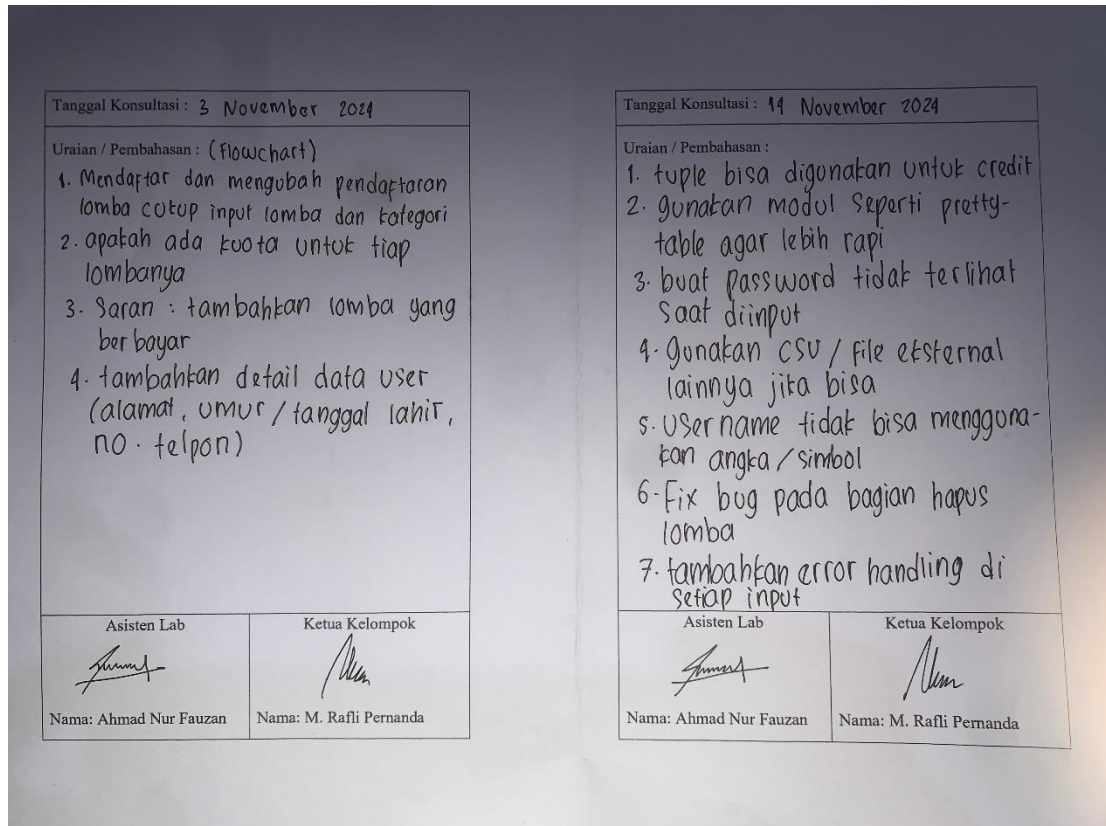 Tanggal Konsultasi : 3 November 2024
Uraian / Pembahasan : (flowchart)
1. Mendaftar dan mengubah pendaftaran
lomba cukup input lomba dan kategori
2. apakah ada kuota untuk tiap
lombanya
3. Saran : tambahkan lomba yang
berbayar
4. tambahkan detail data user
(alamat, umur / tanggal lahir,
no. telpon)
Asisten Lab
Ketua Kelompok
Nama: Ahmad Nur Fauzan
Nama: M. Rafli Pernanda
Tanggal Konsultasi : 14 November 2024
Uraian / Pembahasan :
1. tuple bisa digunakan untuk credit
2. gunakan modul seperti pretty-
table agar lebih rapi
3. buat password tidak terlihat
saat diinput
4. gunakan CSV / file eksternal
lainnya jika bisa
5. Username tidak bisa mengguna-
kan angka / simbol
6. Fix bug pada bagian hapus
lomba
7. tambahkan error handling di
setiap input
Asisten Lab
Ketua Kelompok
Nama: Ahmad Nur Fauzan
Nama: M. Rafli Pernanda